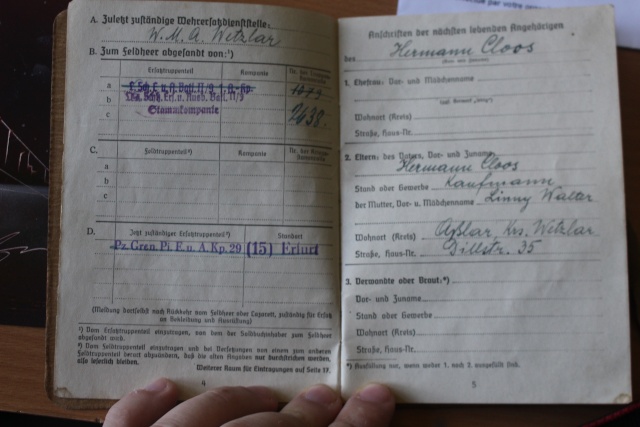 A. Zuletzt zuständige Wehrersatzdienststelle:
W. M. A. Wetzlar
B. Zum Feldheer abgesandt von:¹)
Ersatztruppenteil Kompanie Nr. der Truppenstammrolle
a 1079
b Ers. u. Ausb. Batl. II/9
c Stammkompanie 2638.
C. Feldtruppenteil²) Kompanie Nr. der Kriegsstammrolle
a
b
c
D. Jetzt zuständiger Ersatztruppenteil²) Standort
Pz. Gren. Pi. E. u. A. Kp. 29 (15) Erfurt
(Meldung dortselbst nach Rückkehr vom Feldheer oder Lazarett, zuständig für Ersatz
an Bekleidung und Ausrüstung)
¹) Vom Ersatztruppenteil einzutragen, von dem der Soldbuchinhaber zum Feldheer
abgesandt wird.
²) Vom Feldtruppenteil einzutragen und bei Versetzungen von einem zum anderen
Feldtruppenteil derart abzuändern, daß die alten Angaben nur durchstrichen werden,
also leserlich bleiben.
Weiterer Raum für Eintragungen auf Seite 17.
4
Anschriften der nächsten lebenden Angehörigen
des Hermann Cloos
(Vor- und Zuname)
1. Ehefrau: Vor- und Mädchenname
(ggf. Vermerk „ledig“)
Wohnort (Kreis)
Straße, Haus-Nr.
2. Eltern: des Vaters, Vor- und Zuname
Hermann Cloos
Stand oder Gewerbe Kaufmann
der Mutter, Vor- u. Mädchenname Linny Walter
Wohnort (Kreis) Aßlar, Krs. Wetzlar
Straße, Haus-Nr. Dillstr. 35
3. Verwandte oder Braut:*)
Vor- und Zuname
Stand oder Gewerbe
Wohnort (Kreis)
Straße, Haus-Nr.
*) Ausfüllung nur, wenn weder 1. noch 2. ausgefüllt sind.
5